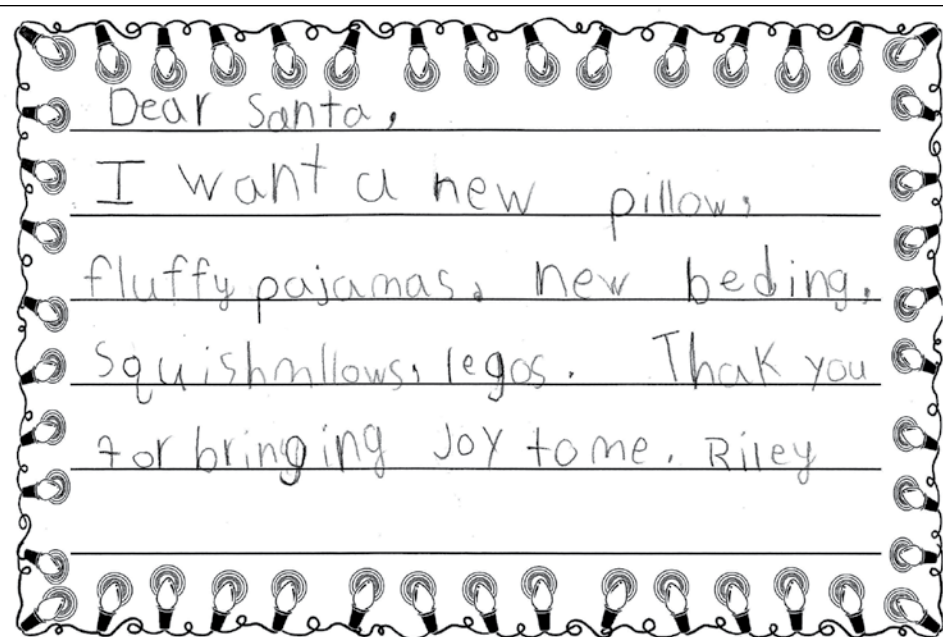 Dear Santa,
I want a new pillow,
fluffy pajamas, new beding,
Squishmllows, legos. Thak you
for bringing Joy to me. Riley